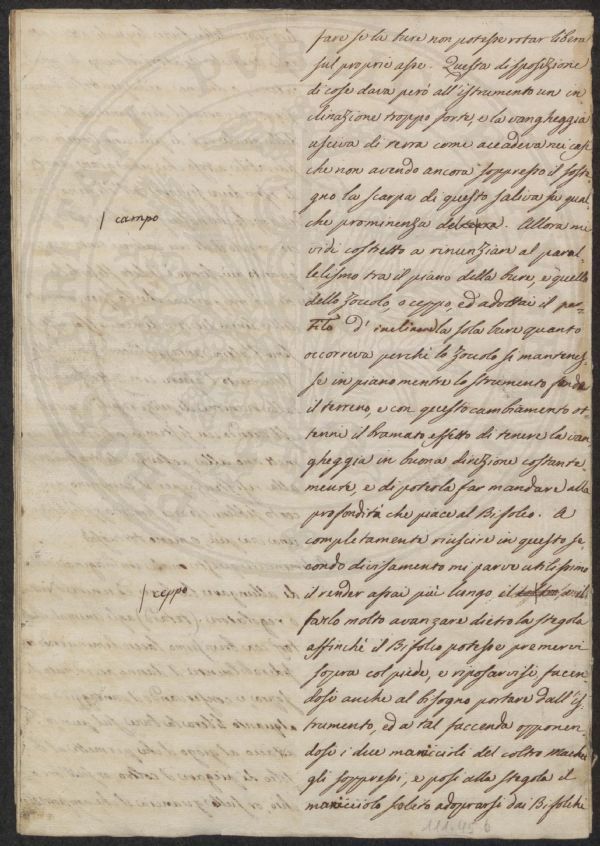 fare se la bure non potesse rotar libera
sul proprio asse. Questa disposizione
di cose dava però all'istrumento un in
clinazione troppo forte, e la vangheggia
usciva di terra come accadeva nei casi
che non avendo ancora soppresso il soste
gno la scarpa di questo saliva su qual
che prominenza del campo. Allora mi
vidi costretto a rinunziare al paral-
lelismo tra il piano della bure, e quello
dello zoccolo, o ceppo, ed adottai il par-
tito d'inclinare la sola bure quanto
occorreva perchè lo zoccolo si mantenes
se in piano mentre lo strumento fende
il terreno, e con questo cambiamento ot
tenni il bramato effetto di tenere la van
gheggia in buona direzione costante
mente, e di poterla far mandare alla
profondità che piace al Bifolco. A
completamente riuscire in questo se
condo divisamento mi parve utilissimo
il render assai più lungo il
farlo molto avanzare dietro la stegola
affinchè il Bifolco potesse premervi
sopra col piede, e riposarvisi facen
dosi anche al bisogno portare dall'is
trumento, ed a tal faccenda opponen
dosi i due maniccioli del coltro Machet
gli soppressi, e posi alla stegola il
manicciolo solito adoprarsi dai Bifolchi
/ campo
/ ceppo
111.45 b